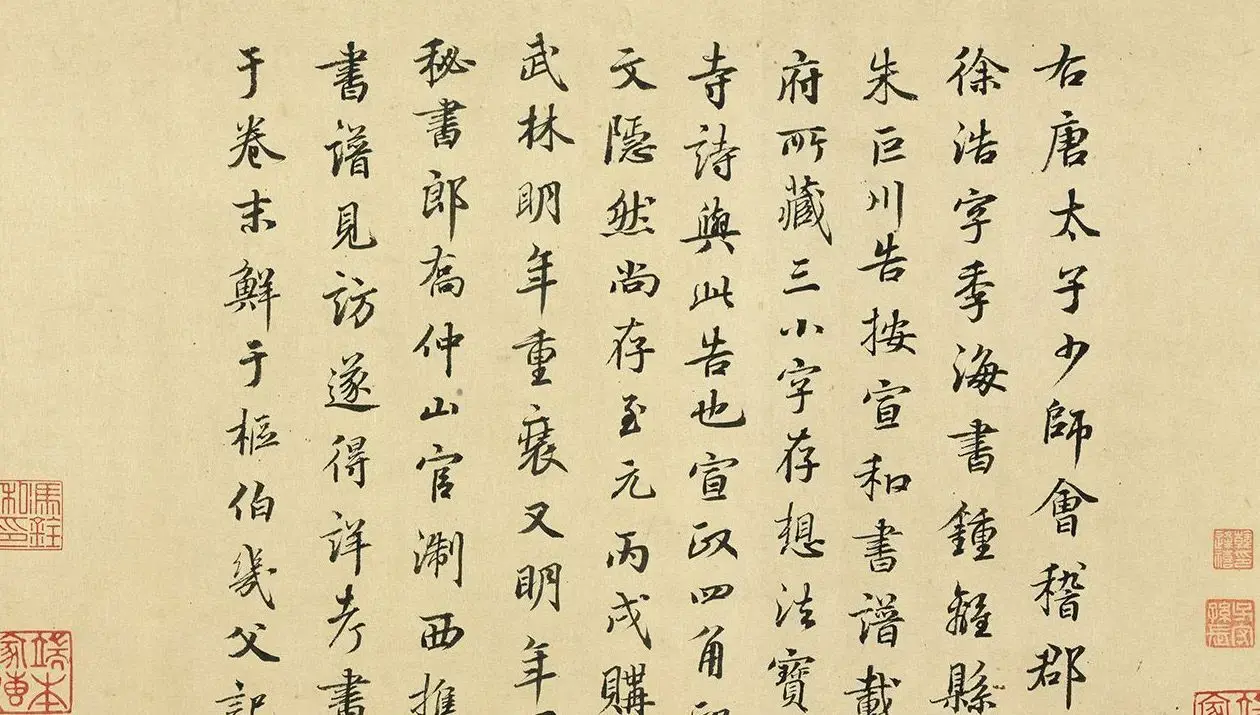 右唐太子少師會稽郡
徐浩字季海書鍾離縣
朱巨川告按宣和書譜載
府所藏三小字存想法寶
寺詩與此告也宣政四角
文隱然尚存至元丙戌購
武林明年重裝又明年
秘書郎喬仲山官淛西推
書譜見訪遂得詳考書
于卷末鮮于樞伯幾父記
馮銓
端本家傳